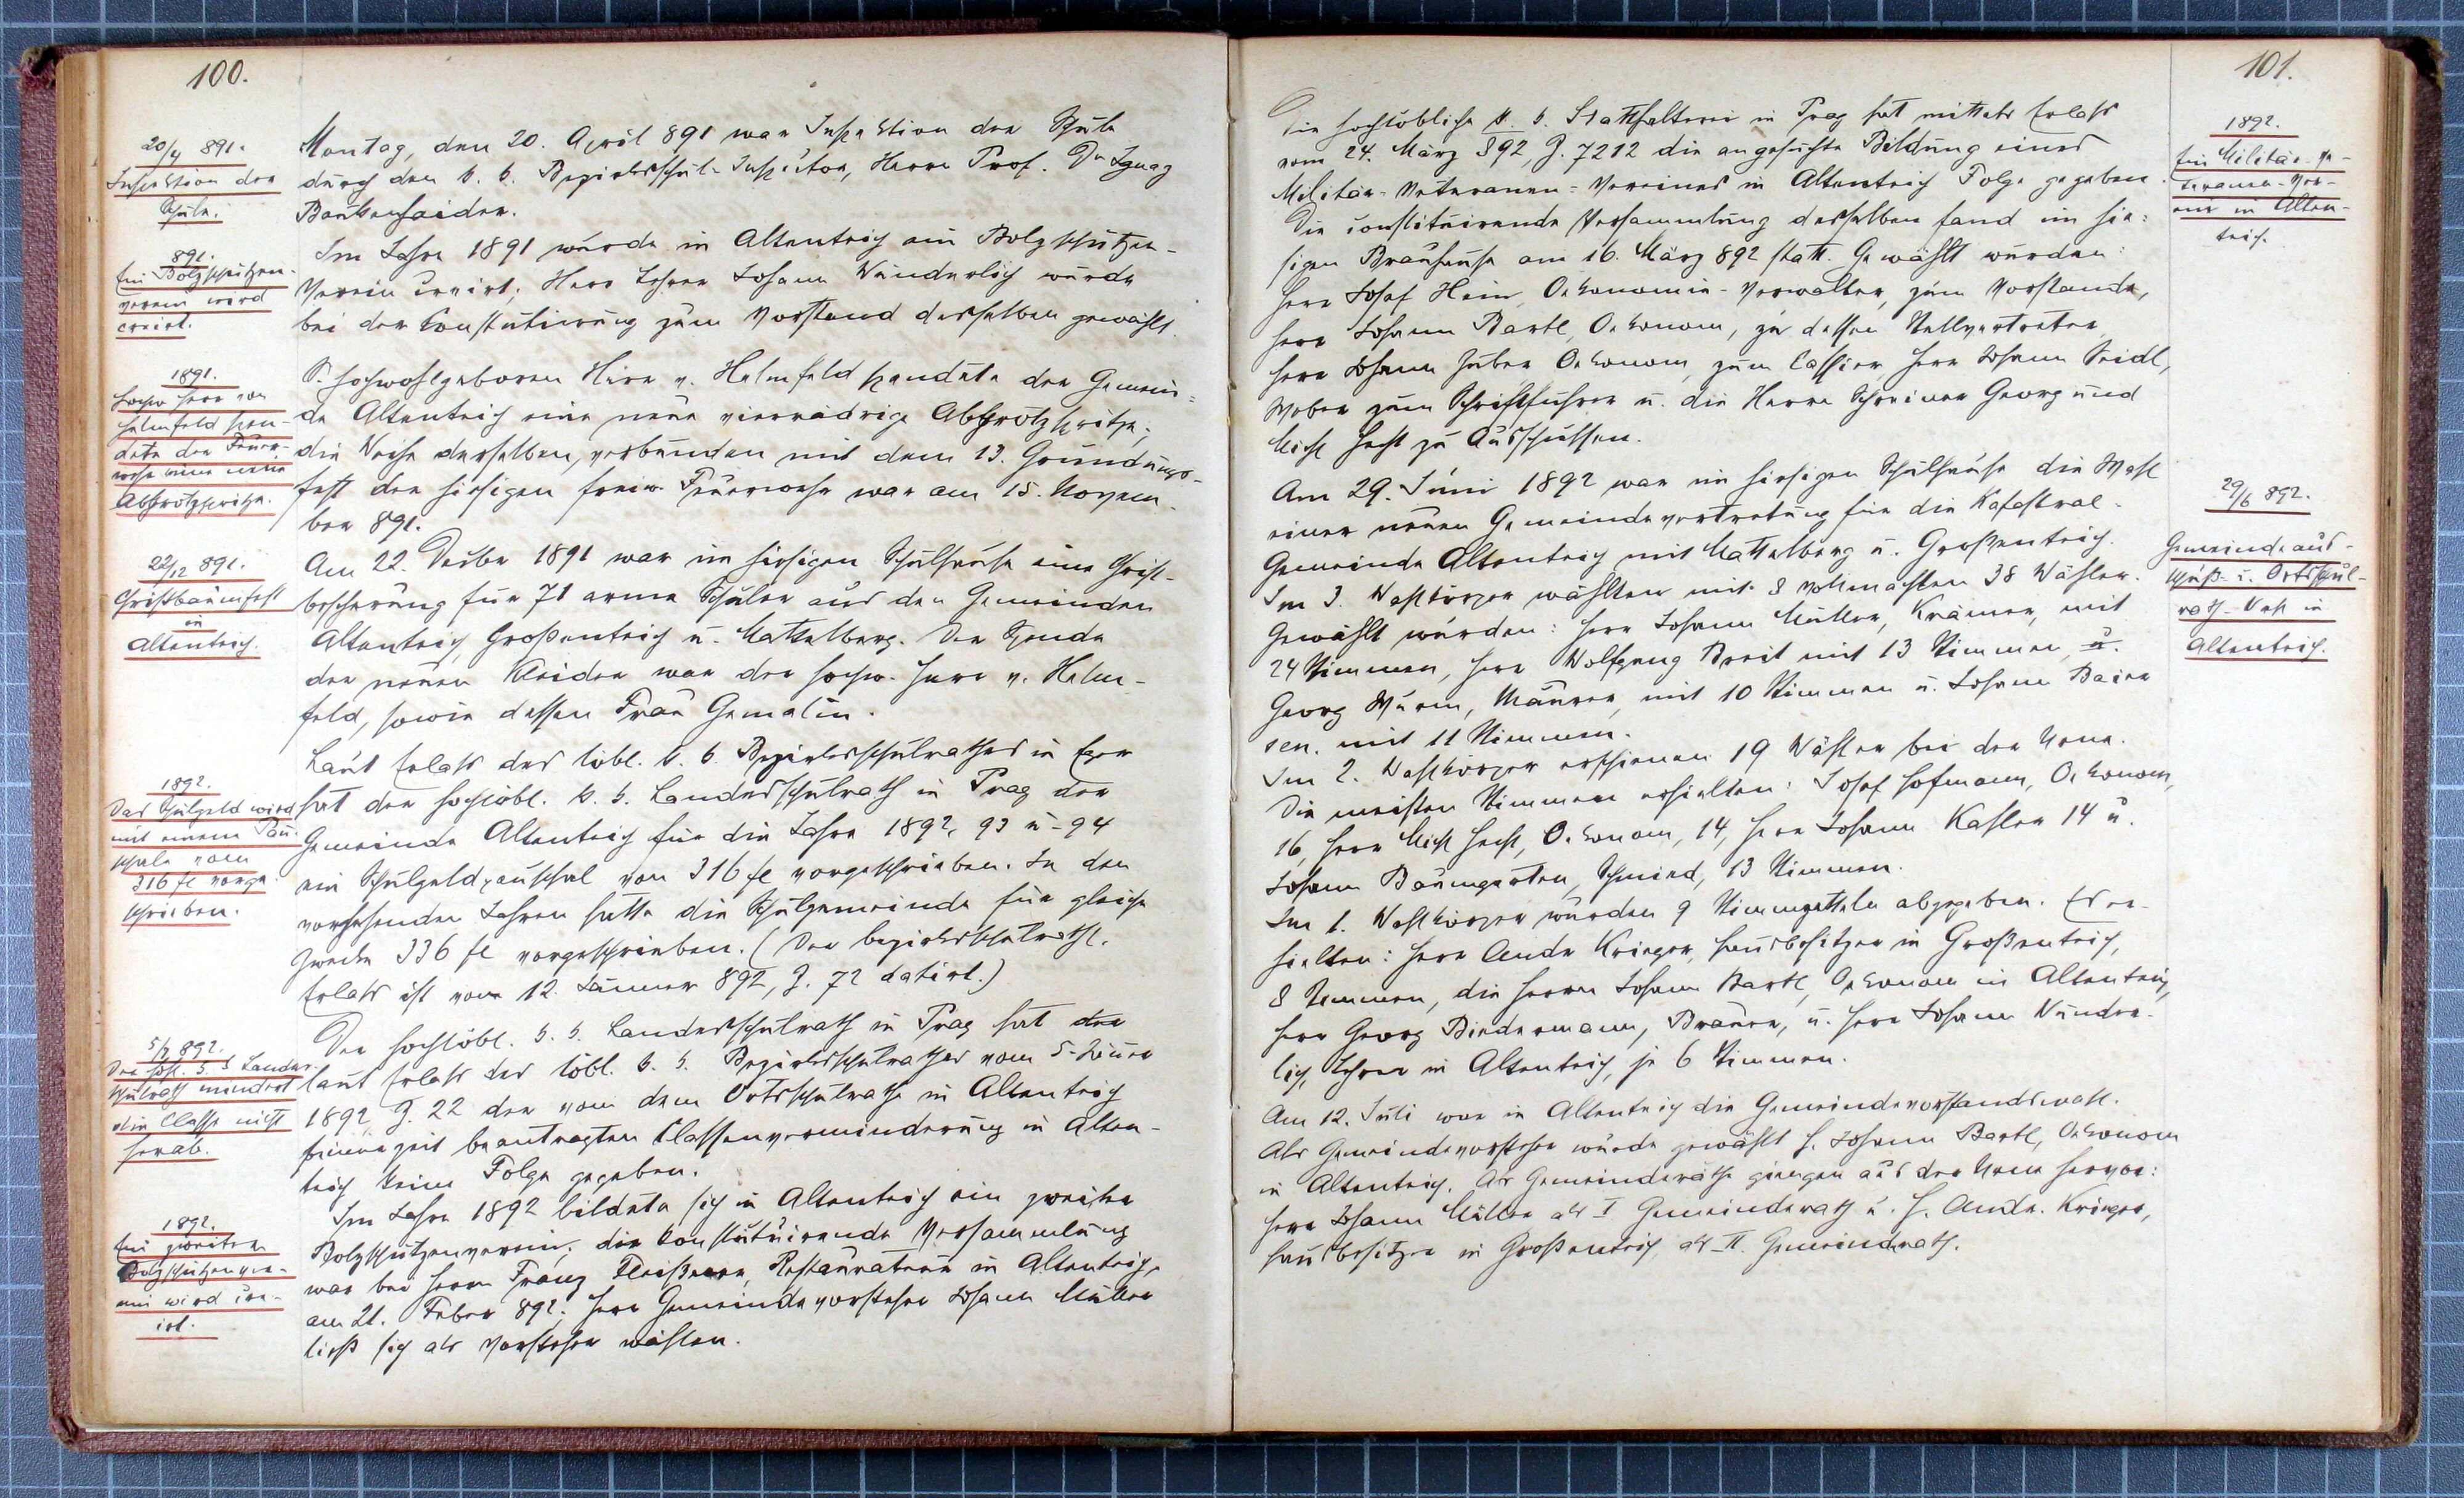 100.
20/4 891.
Inspektion der
Schule.
Montag, den 20. April 891 war Inspektion der Schule
durch den k. k. Bezirksschul-Inspector, Herrn Prof. Dr Ignaz
891.
Ein Bolzschützen-
verein wird
creirt.
Im Jahre 1891 wurde in Altenteich ein Bolzschützen-
Verein creirt; Herr Lehrer Johann Wunderlich wurde
bei der Constutirung zum Vorstand desselben gewählt.
1891.
Hochw Herr von
Helmfeld spen-
dete der Feuer-
wehr eine neue
Abprotzspritze.
S. Hochwohlgeboren Herr v. Helmfeld spendete der Gemein-
de Altenteich eine neue vierrädrige Abprotzspritze;
die Weihe derselben, verbunden mit dem 13. Gründungs-
fest der hiesigen freiw. Feuerwehr war am 15. Novem-
ber 891.
22/12 891.
Christbaumfest
in
Altenteich.
Am 22. Dezber 1891 war im hiesigen Schulhause eine Christ-
bescherung für 71 arme Schüler aus den Gemeinden
Altenteich, Großenteich u. Mattelberg. Der Spender
der neuen Kleider war der hochw. Herr v. Helm-
feld, sowie dessen Frau Gemalin.
1892.
Das Schulgeld wird
mit einem Pau-
schale von
316 fl vorge-
schrieben.
Laut Erlaß des löbl. k. k. Bezirksschulrathes in Eger
hat der hochlöbl. k. k. Landesschulrath in Prag der
Gemeinde Altenteich für die Jahre 1892, 93 u - 94
ein Schulgeldpauschal von 316 fl vorgeschrieben. In den
vorhehenden Jahren hatte die Schulgemeinde für gleiche
Zwecke 336 fl vorgeschrieben. (Der bezirksschulrathl.
Erlaß ist vom 12. Jänner 892, Z. 72 datirt.)
5/1 892.
Der hohe k. k. Landes-
schulrath mindert
die Classe nicht
herab.
Der hochlöbl. k. k. Landesschulrath in Prag hat der
laut Erlaß des löbl. k. k. Bezirksschulrathes vom 5. Jänner
1892 Z. 22 der von dem Ortsschulrathe in Altenteich
seinerzeit beantragten Classenverminderung in Alten-
teich keine Folge gegeben.
1892.
Ein zweiter
Bolzschützenver-
ein wird cre-
irt.
Im Jahre 1892 bildete sich in Altenteich ein zweiter
Bolzschützenverein; die konstutuirende Versammlung
war bei Herrn Franz Restaurateur in Altenteich,
am 21. Feber 892. Herr Gemeindevorsteher Johann Müller
ließ sich als Vorsteher wählen.
101.
1892.
Ein Militär-Ve-
teranen-Ver-
ein in Alten-
teich.
Die hochlöbliche k. k. Statthalterei in Prag hat mittels Erlaß
vom 24. März 892, Z. 7212 die angesuchte Bildung eines
Militär-Veteranen-Vereines in Altenteich Folge gegeben.
Die constituirende Versammlung desselben fand im hie-
sigen Brauhause am 16. März 892 statt. Gewählt wurden:
Herr Josef Hein, Oekonomie-Verwalter, zum Vorstande,
Herr Johann Bartl, Oekonom, zu dessen Stellvertreter
Herr Johann Huber Oekonom, zum Cassier, Herr Johann Seidl,
Weber zum Schriftführer u. die Herrn Schreiner Georg und
Mich Hecht zu Ausschüssen.
29/6 892.
Gemeindeaus-
schuß- u. Ortsschul-
rath-Wahl in
Altenteich.
Am 29. Juni 1892 war im hiesigen Schulhause die Wahl
einer neuen Gemeindevertretung für die Katastral-
Gemeinde Altenteich mit Mattelberg u. Großenteich.
Im 3. Wahlkörper wählten mit 8 Vollmachten 38 Wähler.
Gewählt wurden: Herr Johann Müller, Krämer, mit
24 Stimmen, Herr Wolfgang Breit mit 13 Stimmen, u.
Georg Wurm, Maurer, mit 10 Stimmen u. Johann Baier
sen. mit 11 Stimmen.
Im 2. Wahlkörper erschienen 19 Wähler bei der Urne.
Die meisten Stimmen erhielten: Josef Hofmann, Oekonom,
16, Herr Mich Hecht, Oekonom, 14, Herr Johann Kahler 14 u.
Johann Baumgarten, Schmied, 13 Stimmen.
Im 1. Wahlkörper wurden 9 Stimmzetteln abgegeben. Es er-
hielten: Herr Andr Krieger, Hausbesitzer in Großenteich,
8 Stimmen, die Herrn Johann Bartl, Oekonom in Altenteich,
Herr Georg Biedermann, Brauer, u. Herr Johann Wunder-
lich, Lehrer in Altenteich, je 6 Stimmen.
Am 12. Juli war in Altenteich die Gemeindevorstandswahl.
Als Gemeindevorsteher wurde gewählt H. Johann Bartl, Oekonom
in Altenteich. Als Gemeinderäthe giengen aus der Urne hervor:
Herr Johann Müller als I Gemeinderath u. H. Andr. Krieger,
Hausbesitzer in Großenteich, als II. Gemeinderath.